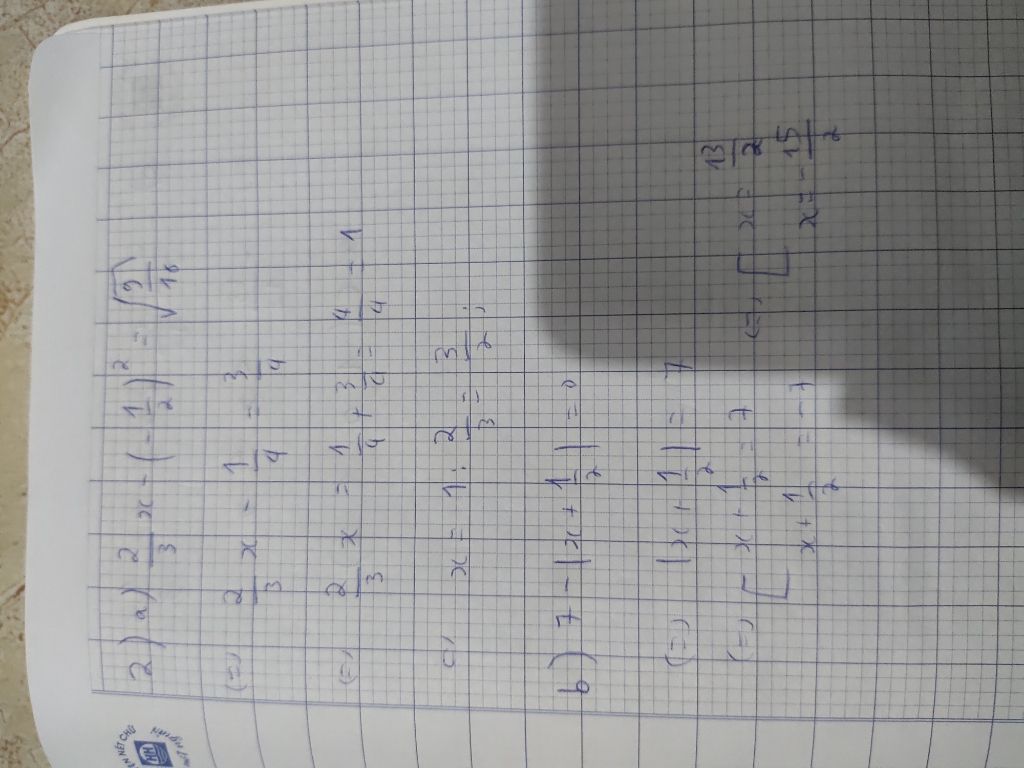 2) a) 2/3 x - (-1/2)² = √(9/16)
(=) 2/3 x - 1/4 = 3/4
(=) 2/3 x = 1/4 + 3/4 = 4/4 = 1
(=) x = 1 : 2/3 = 3/2 ;
b) 7 - |x + 1/2| = 0
(=) |x + 1/2| = 7
(=) [ x + 1/2 = 7 (=) [ x = 13/2
x + 1/2 = -7 x = -15/2
NÉT CHỮ